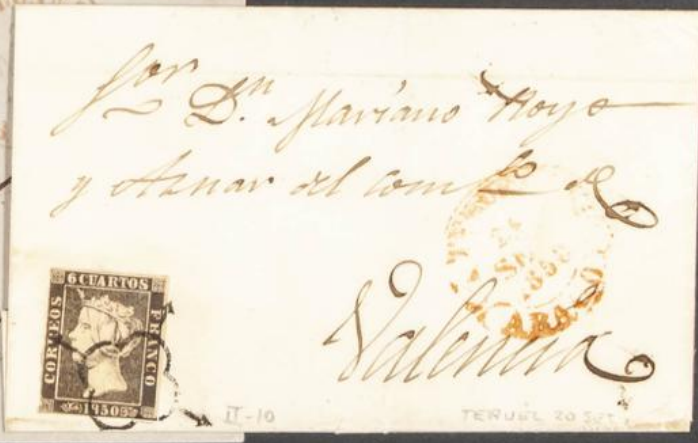 Sor Dn. Mariano Royo
y Aznar del comco de
Valencia
6 CUARTOS
CORREOS
FRANCO
1850
TERUEL
SE
ARAGO
II-10
TERUEL 20 SET.